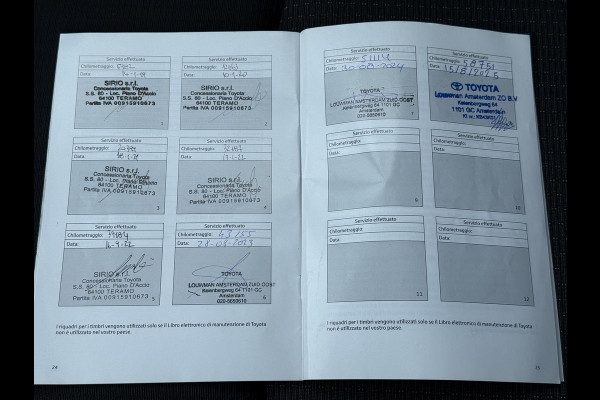 Servizio effettuato
Chilometraggio:
Data:
SIRIO s.r.l.
Concessionaria Toyota
S.S. 80 - Loc. Piano D'Accio
64100 TERAMO
Partita IVA 00915910673
1
Servizio effettuato
Chilometraggio:
Data:
SIRIO s.r.l.
Concessionaria Toyota
S.S. 80 - Loc. Piano D'Accio
64100 TERAMO
Partita IVA 00915910673
2
Servizio effettuato
Chilometraggio:
Data:
SIRIO s.r.l.
Concessionaria Toyota
S.S. 80 - Loc. Piano D'Accio
64100 TERAMO
Partita IVA 00915910673
3
Servizio effettuato
Chilometraggio:
Data:
SIRIO s.r.l.
Concessionaria Toyota
S.S. 80 - Loc. Piano D'Accio
64100 TERAMO
Partita IVA 00915910673
4
Servizio effettuato
Chilometraggio:
Data:
SIRIO s.r.l.
Concessionaria Toyota
S.S. 80 - Loc. Piano D'Accio
64100 TERAMO
Partita IVA 00915910673
5
Servizio effettuato
Chilometraggio: 43155
Data: 21-08-2023
TOYOTA
LOUWMAN AMSTERDAM ZUID-OOST
Keienbergweg 64 1101 GC
Amsterdam
6
I riquadri per i timbri vengono utilizzati solo se il Libro elettronico di manutenzione di Toyota
non è utilizzato nel vostro paese.
24
Servizio effettuato
Chilometraggio: 51114
Data: 30-08-2024
TOYOTA
LOUWMAN AMSTERDAM ZUID-OOST
Keienbergweg 64 1101 GC
Amsterdam
7
Servizio effettuato
Chilometraggio: 58751
Data:
TOYOTA
Louwman Amsterdam ZO B.V
Keienbergweg 64
1101 GC Amsterdam
Servizio effettuato
Chilometraggio:
Data:
9
Servizio effettuato
Chilometraggio:
Data:
10
Servizio effettuato
Chilometraggio:
Data:
11
Servizio effettuato
Chilometraggio:
Data:
12
I riquadri per i timbri vengono utilizzati solo se il Libro elettronico di manutenzione di Toyota
non è utilizzato nel vostro paese.